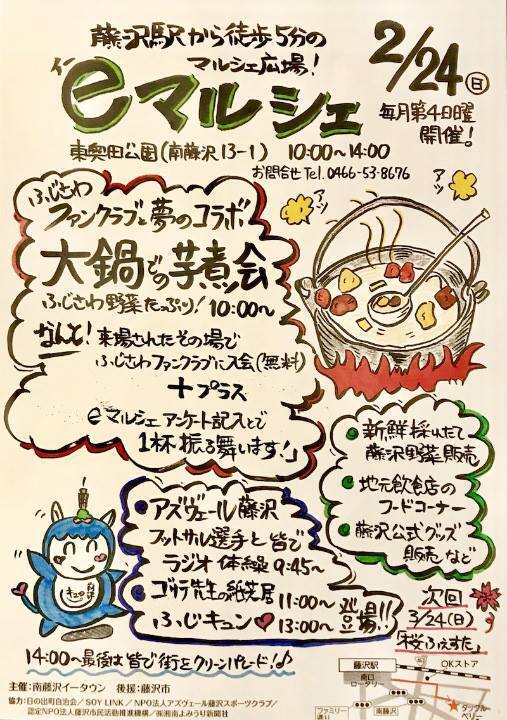 藤沢駅から徒歩5分の
マルシェ広場!
2/24(日)
イー
eマルシェ
毎月第4日曜
開催!
東奥田公園(南藤沢13-1) 10:00~14:00
お問合せTel.0466-53-8676
ふじさわ
ファンクラブと夢のコラボ
大鍋での芋煮会
ふじさわ野菜たっぷり! 10:00~
なんと! 来場されたその場で
ふじさわファンクラブに入会(無料)
+プラス
eマルシェアンケート記入とで
1杯振る舞います!」
アツ
アツ
新鮮採れたて
藤沢野菜販売
地元飲食店の
フードコーナー
藤沢公式グッズ
販売など
アズヴェール藤沢
フットサル選手と皆で
ラジオ体操 9:45~
ゴリラ先生の紙芝居 11:00~
ふじキュン♥ 13:00~
登場!!
キュン
14:00~最後は皆で街をクリーンパレード!♪
次回
3/24(日)
「桜ふぇすた」
主催:南藤沢イータウン 後援:藤沢市
協力:日の出町自治会/SOY LINK/NPO法人アズヴェール藤沢スポーツクラブ/
認定NPO法人藤沢市民活動推進機構/㈱湘南よみうり新聞社
藤沢駅
南口
ロータリー
OKストア
ファミリー
通り
南藤沢
タックル
ベリー